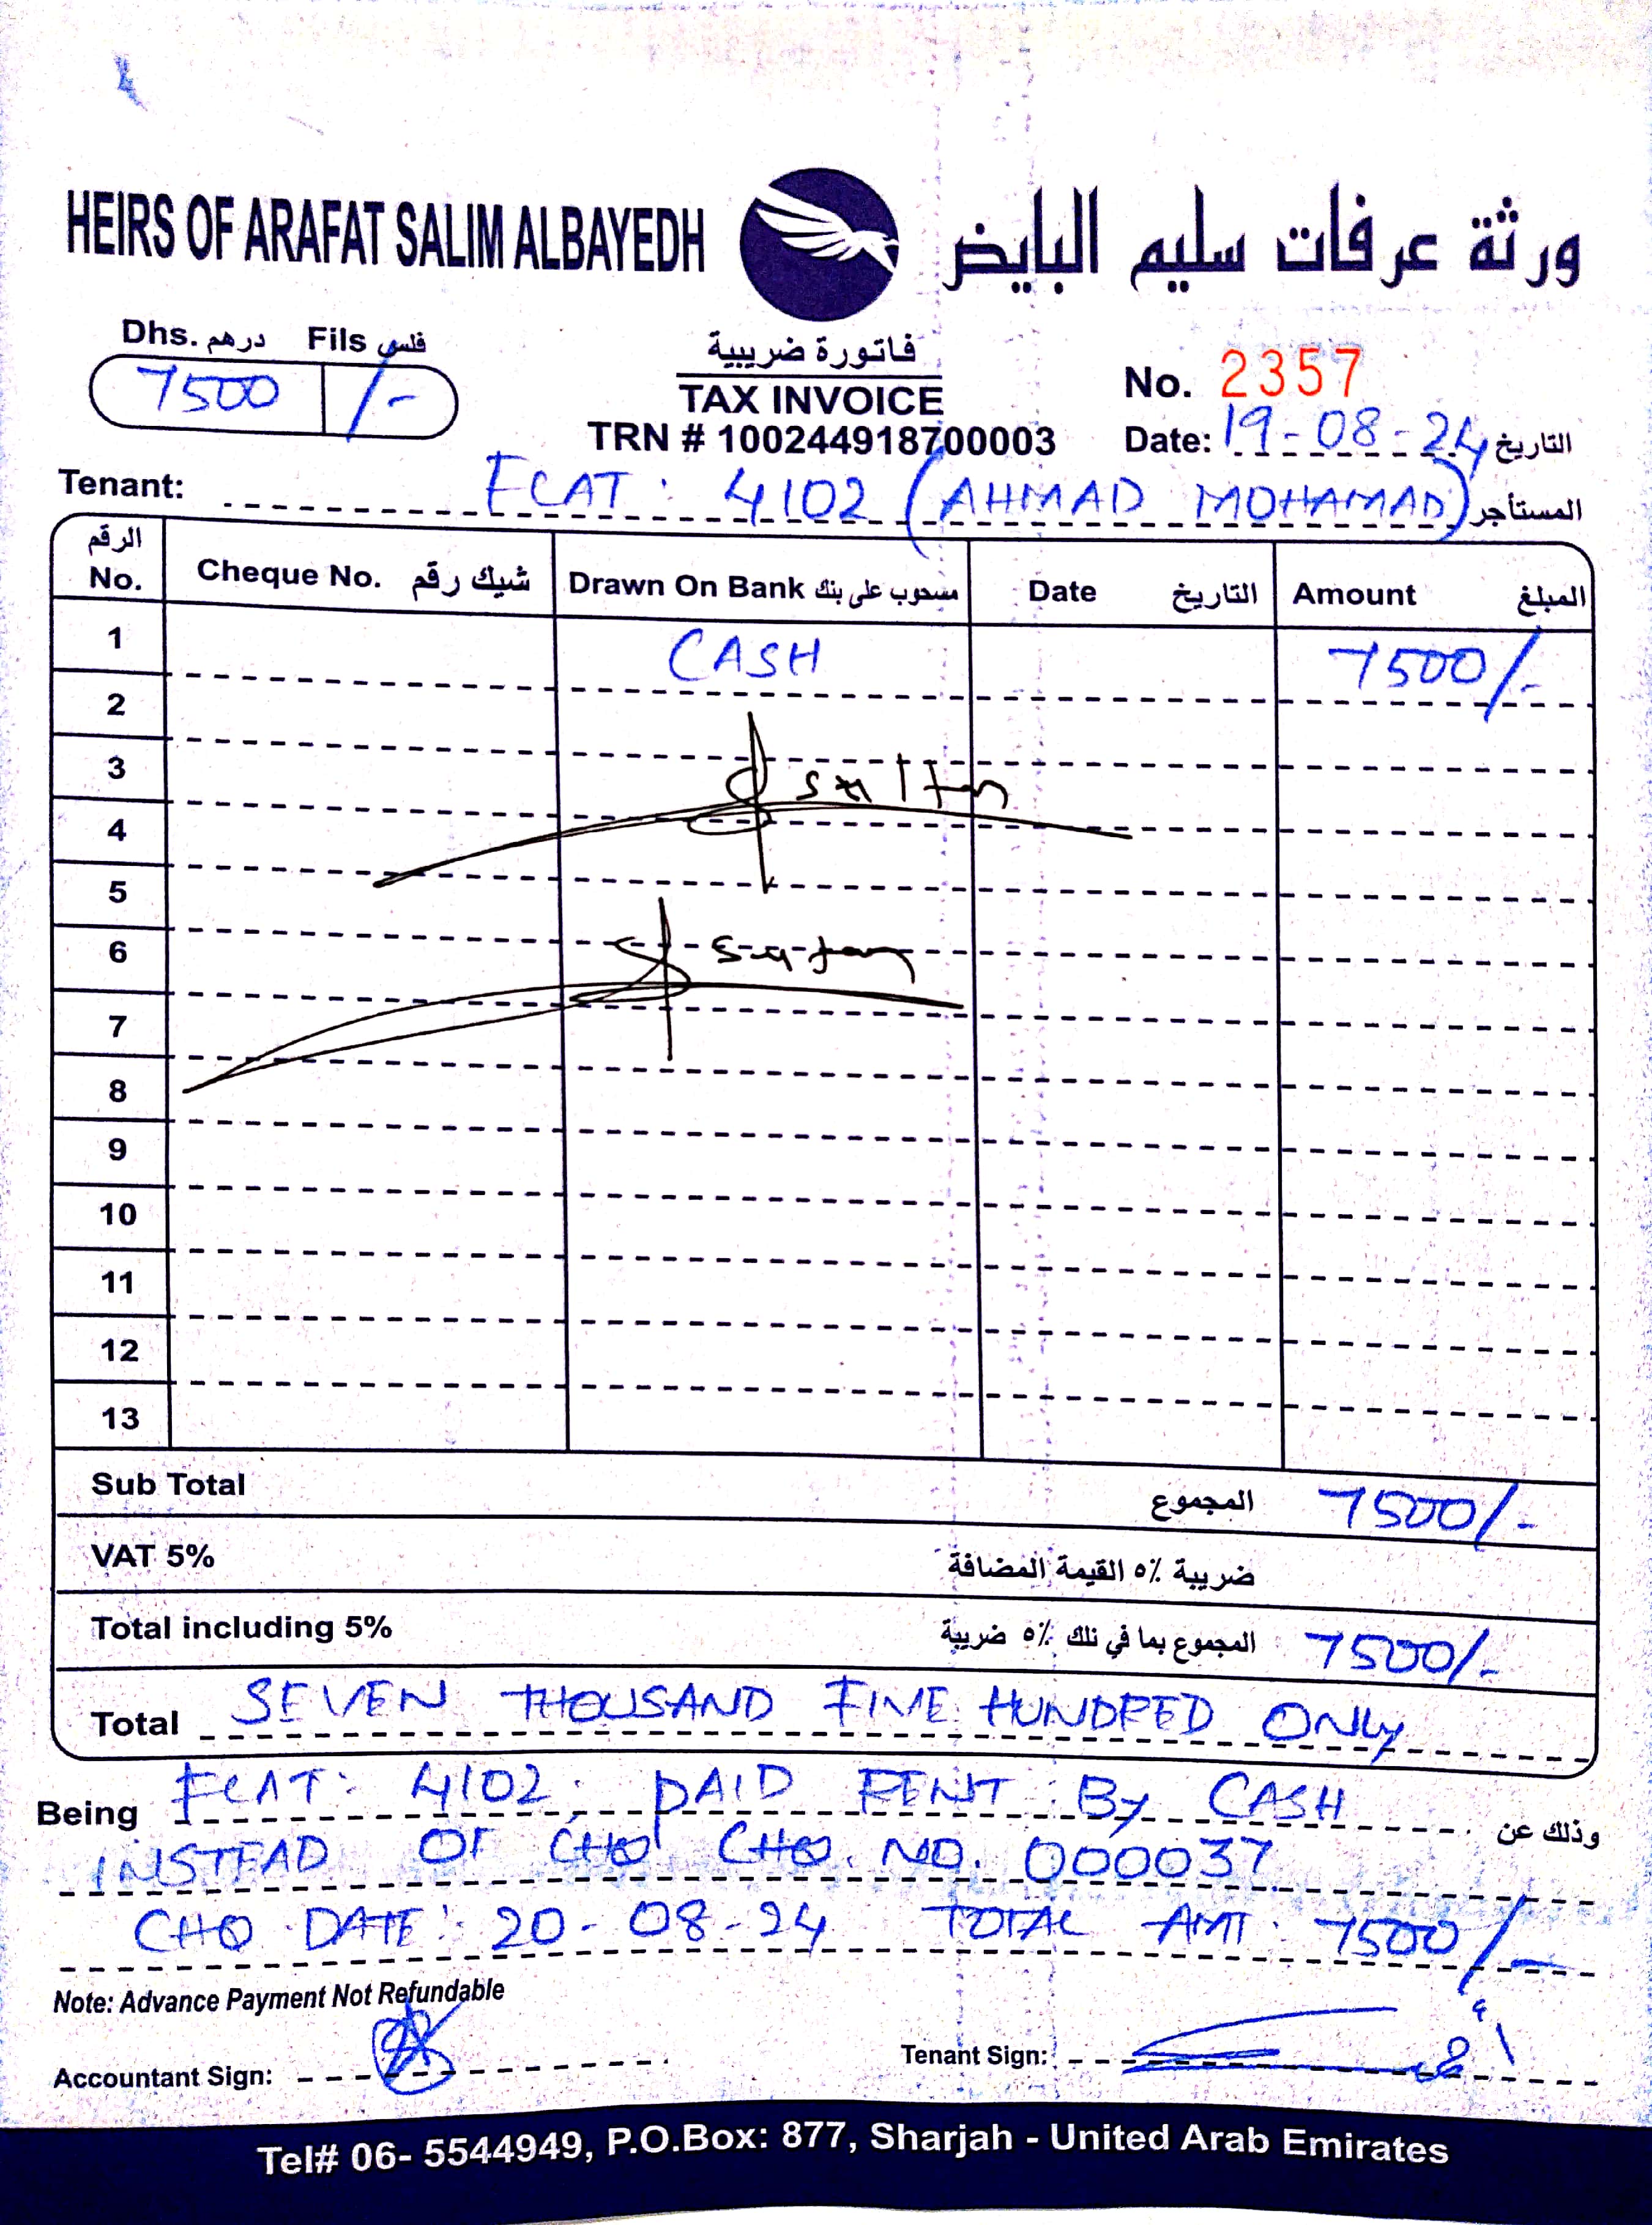 HEIRS OF ARAFAT SALIM ALBAYEDH ورثة عرفات سليم البايض
Dhs. درهم Fils فلس
7500 /-
فاتورة ضريبية
TAX INVOICE
TRN # 100244918700003
No. 2357
Date: 19-08-24 التاريخ
Tenant: FLAT: 4102 (AHMAD MOHAMAD) المستأجر
الرقم No. Cheque No. شيك رقم Drawn On Bank مسحوب على بنك Date التاريخ Amount المبلغ
1 CASH 7500/-
2
3
4
5
6
7
8
9
10
11
12
13
Sub Total المجموع 7500/-
VAT 5% ضريبة ٥٪ القيمة المضافة
Total including 5% المجموع بما في ذلك ٥٪ ضريبة 7500/-
Total SEVEN THOUSAND FIVE HUNDRED ONLY
Being FLAT: 4102, PAID RENT BY CASH وذلك عن
INSTEAD OF CHQ CHQ. NO. 000037
CHQ DATE: 20-08-24 TOTAL AMT: 7500/-
Note: Advance Payment Not Refundable
Accountant Sign: Tenant Sign:
Tel# 06- 5544949, P.O.Box: 877, Sharjah - United Arab Emirates